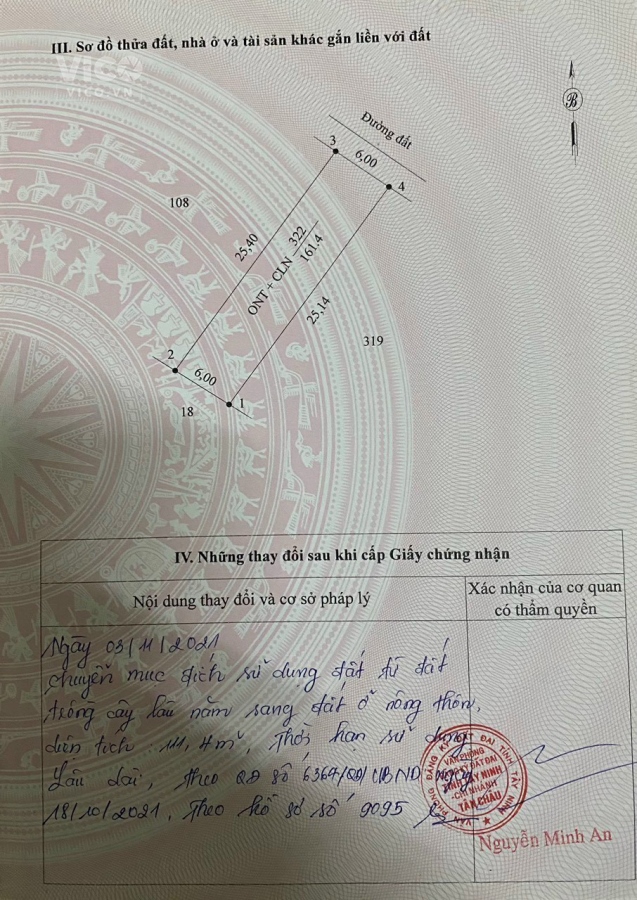 III. Sơ đồ thửa đất, nhà ở và tài sản khác gắn liền với đất
VICO
VICO.VN
B
Đường đất
3
6,00
4
108
25,40
ONT + CLN 322
161.4
25,14
319
2
6,00
1
18
IV. Những thay đổi sau khi cấp Giấy chứng nhận
Nội dung thay đổi và cơ sở pháp lý
Xác nhận của cơ quan
có thẩm quyền
Ngày 03/11/2021
chuyển mục đích sử dụng đất từ đất
trồng cây lâu năm sang đất ở nông thôn,
diện tích: 111,4m², Thời hạn sử dụng
Lâu dài, theo QĐ số 6364/QĐ/UBND ngày
18/10/2021, Theo hồ sơ số 9095
VĂN PHÒNG ĐĂNG KÝ ĐẤT ĐAI TỈNH TÂY NINH
VĂN PHÒNG
ĐĂNG KÝ ĐẤT ĐAI
TỈNH TÂY NINH
CHI NHÁNH
TÂN CHÂU
Nguyễn Minh An